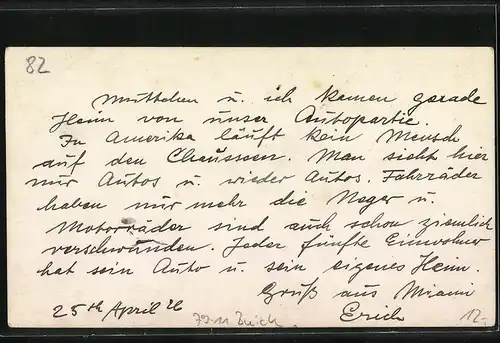 82
Muttchen u. ich kamen gerade
Heim von unser Autopartie.
In Amerika läuft kein Mensch
auf den Chausseen. Man sieht hier
nur Autos u. wieder Autos. Fahrräder
haben nur mehr die Neger u.
Motorräder sind auch schon ziemlich
verschwunden. Jeder fünfte Einwohner
hat sein Auto u. sein eigenes Heim.
Gruß aus Miami
25th April 26 Erich
12.-